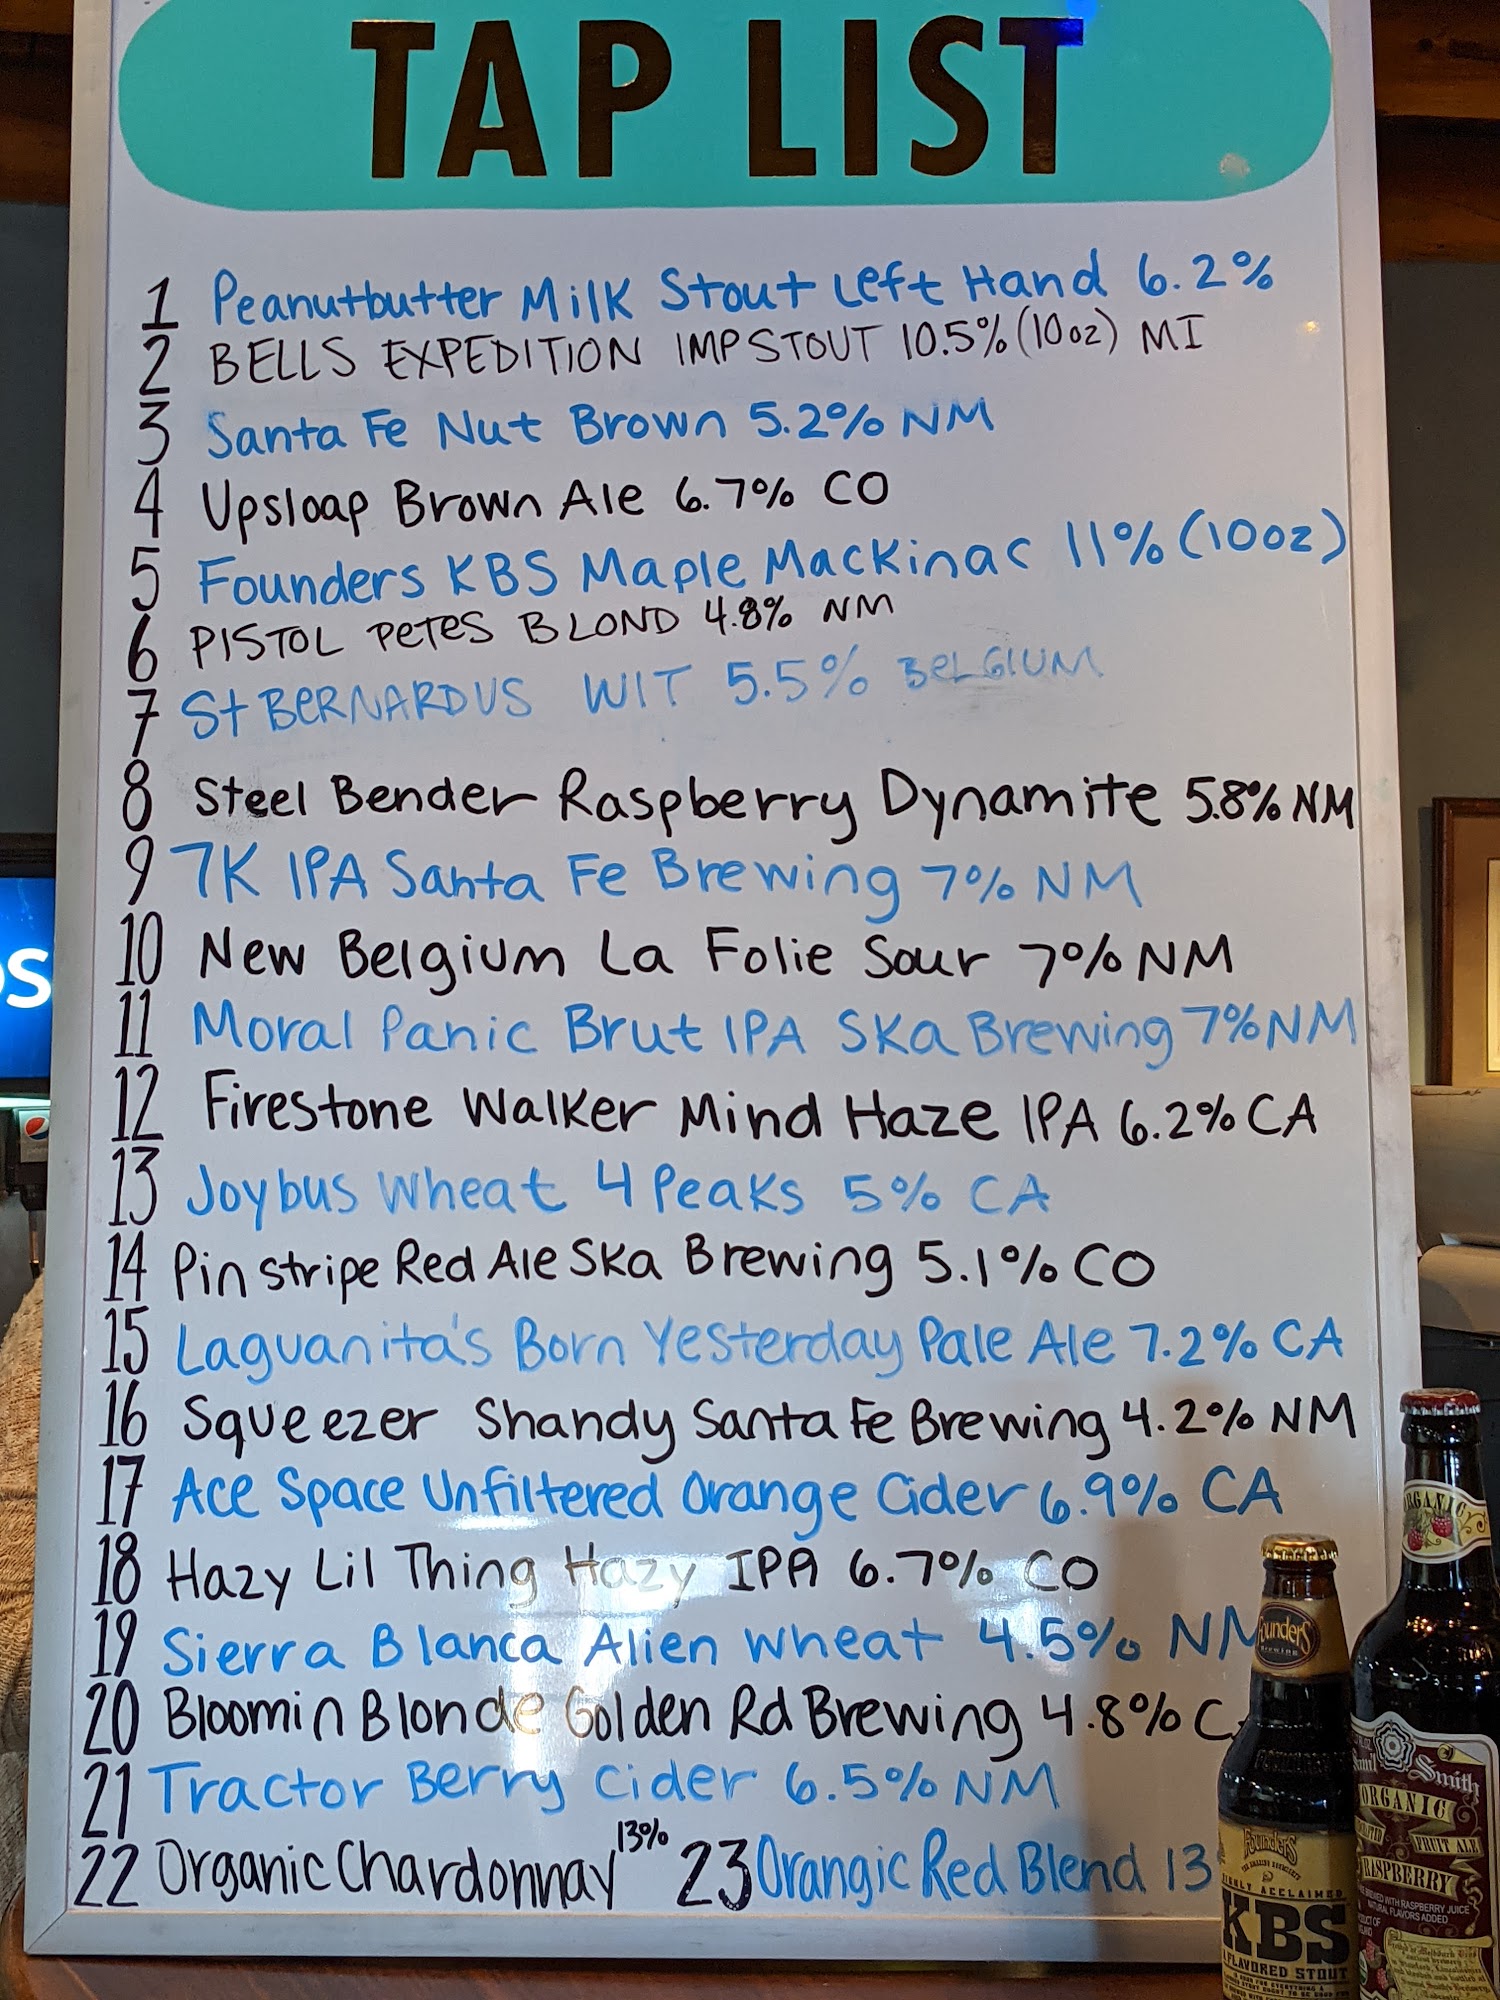 TAP LIST
1 Peanutbutter Milk Stout Left Hand 6.2%
2 BELLS EXPEDITION IMP STOUT 10.5% (10oz) MI
3 Santa Fe Nut Brown 5.2% NM
4 Upsloap Brown Ale 6.7% CO
5 Founders KBS Maple Mackinac 11% (10oz)
6 PISTOL PETES BLOND 4.8% NM
7 St BERNARDUS WIT 5.5% BELGIUM
8 Steel Bender Raspberry Dynamite 5.8% NM
9 7K IPA Santa Fe Brewing 7% NM
10 New Belgium La Folie Sour 7% NM
11 Moral Panic Brut IPA Ska Brewing 7% NM
12 Firestone Walker Mind Haze IPA 6.2% CA
13 Joybus Wheat 4 Peaks 5% CA
14 Pinstripe Red Ale Ska Brewing 5.1% CO
15 Laguanita's Born Yesterday Pale Ale 7.2% CA
16 Squeezer Shandy Santa Fe Brewing 4.2% NM
17 Ace Space Unfiltered Orange Cider 6.9% CA
18 Hazy Lil Thing Hazy IPA 6.7% CO
19 Sierra Blanca Alien Wheat 4.5% NM
20 Bloomin Blonde Golden Rd Brewing 4.8%
21 Tractor Berry Cider 6.5% NM
22 Organic Chardonnay 13% 23 Orangic Red Blend 13
Founders
BREWING
Founders
HIGHLY ACCLAIMED
KBS
FLAVORED STOUT
ORGANIC
Smith
ORGANIC
FRUIT ALE
RASPBERRY
BREWED WITH RASPBERRY JUICE
NATURAL FLAVORS ADDED
PRODUCT OF